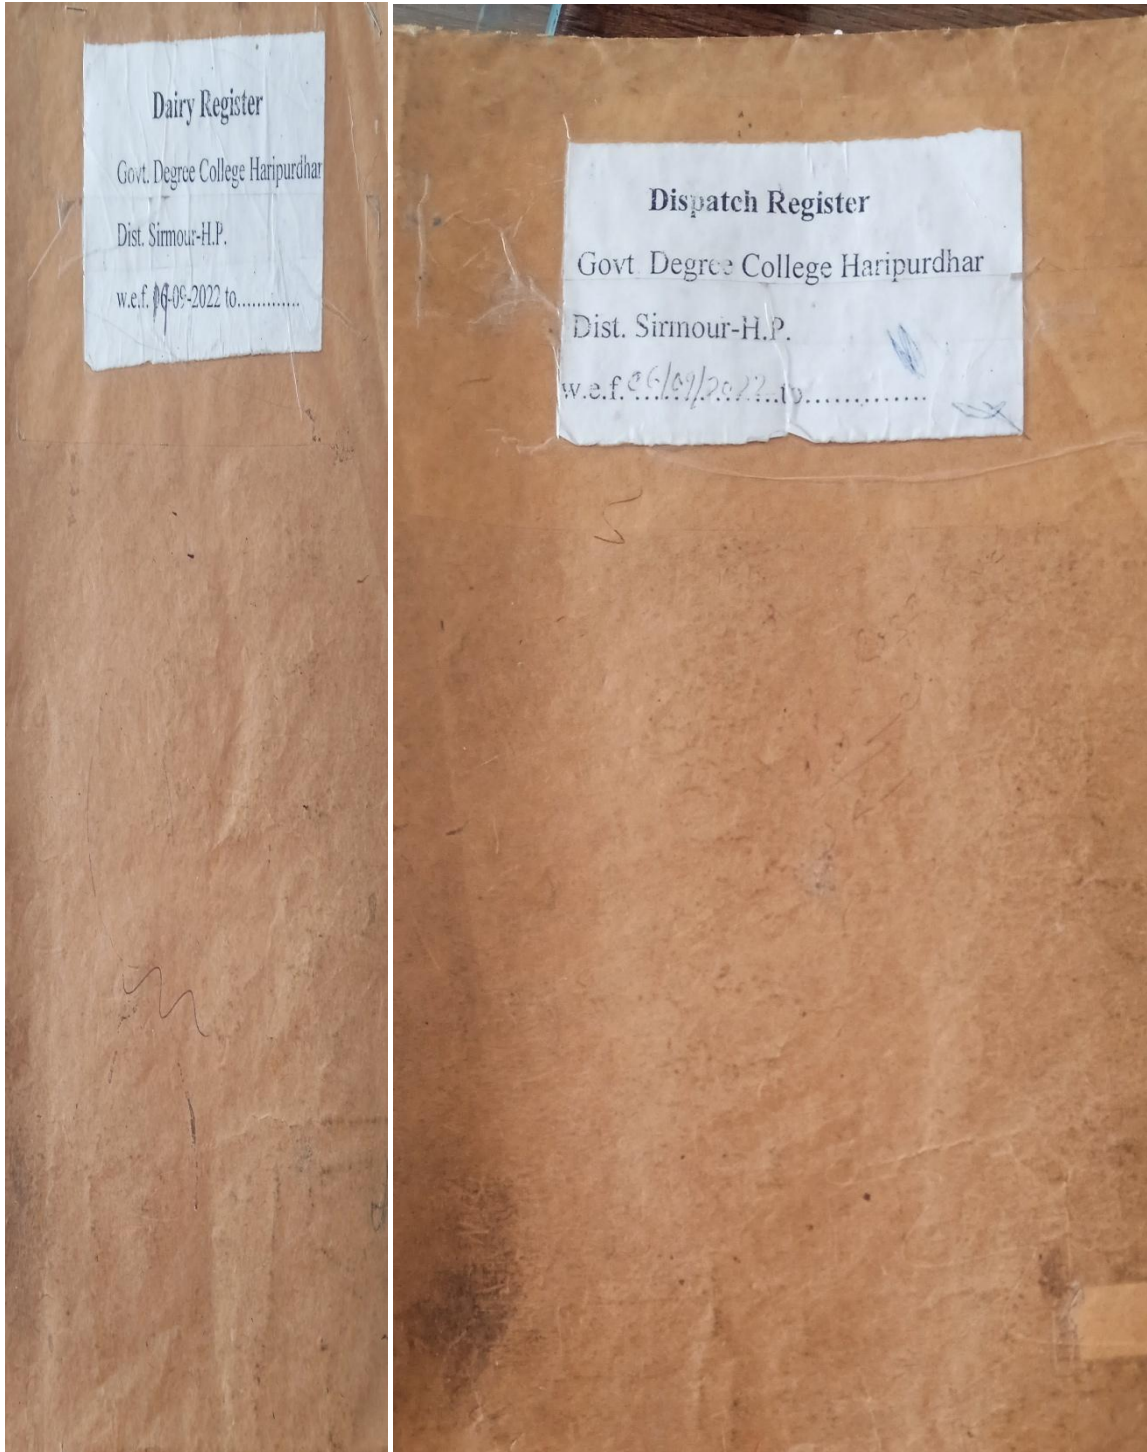 Dairy Register
Govt. Degree College Haripurdhar
Dist. Sirmour-H.P.
w.e.f. 06-09-2022 to.............
Dispatch Register
Govt. Degree College Haripurdhar
Dist. Sirmour-H.P.
w.e.f. 06/09/2022 to..............